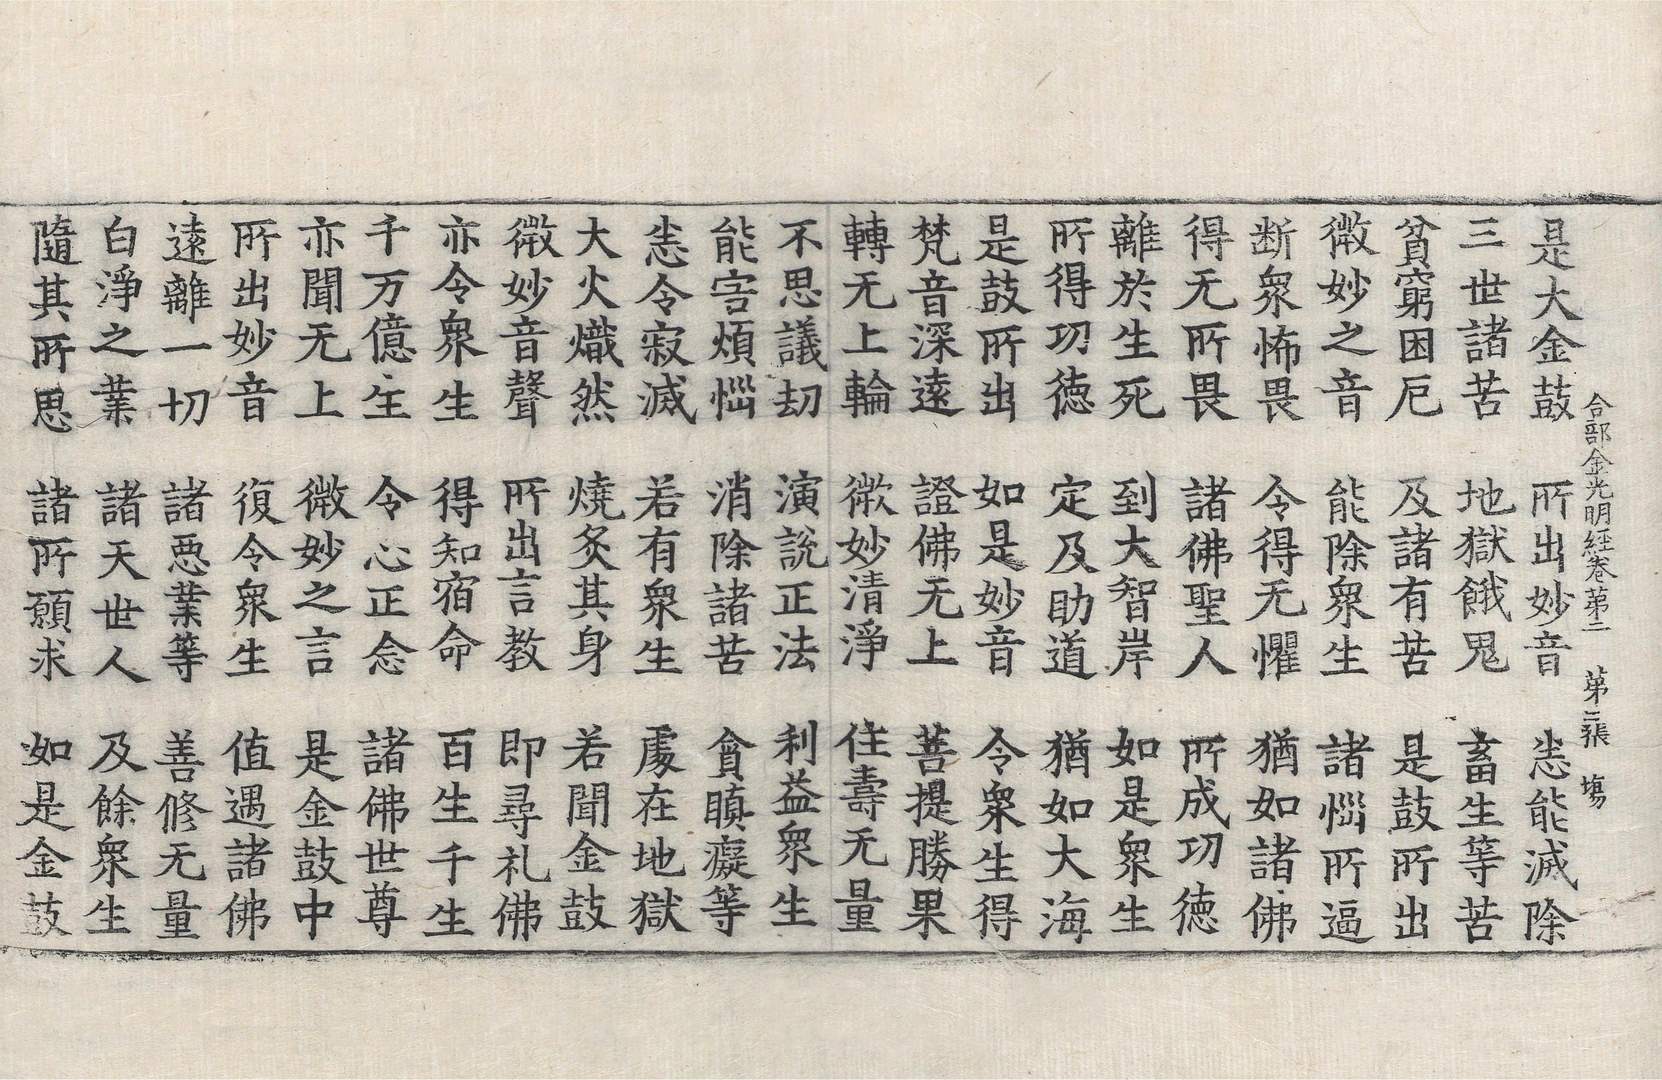 合部金光明經卷第二　第二張　塲
是大金鼓　所出妙音　悉能滅除
三世諸苦　地獄餓鬼　畜生等苦
貧窮困厄　及諸有苦　是鼓所出
微妙之音　能除衆生　諸惱所逼
断衆怖畏　令得无懼　猶如諸佛
得无所畏　諸佛聖人　所成功德
離於生死　到大智岸　如是衆生
所得功德　定及助道　猶如大海
是鼓所出　如是妙音　令衆生得
梵音深遠　證佛无上　菩提勝果
轉无上輪　微妙清淨　住壽无量
不思議劫　演說正法　利益衆生
能害煩惱　消除諸苦　貪瞋癡等
悉令寂滅　若有衆生　處在地獄
大火熾然　燒炙其身　若聞金鼓
微妙音聲　所出言教　即尋礼佛
亦令衆生　得知宿命　百生千生
千万億生　令心正念　諸佛世尊
亦聞无上　微妙之言　是金鼓中
所出妙音　復令衆生　值遇諸佛
遠離一切　諸惡業等　善修无量
白淨之業　諸天世人　及餘衆生
隨其所思　諸所願求　如是金鼓